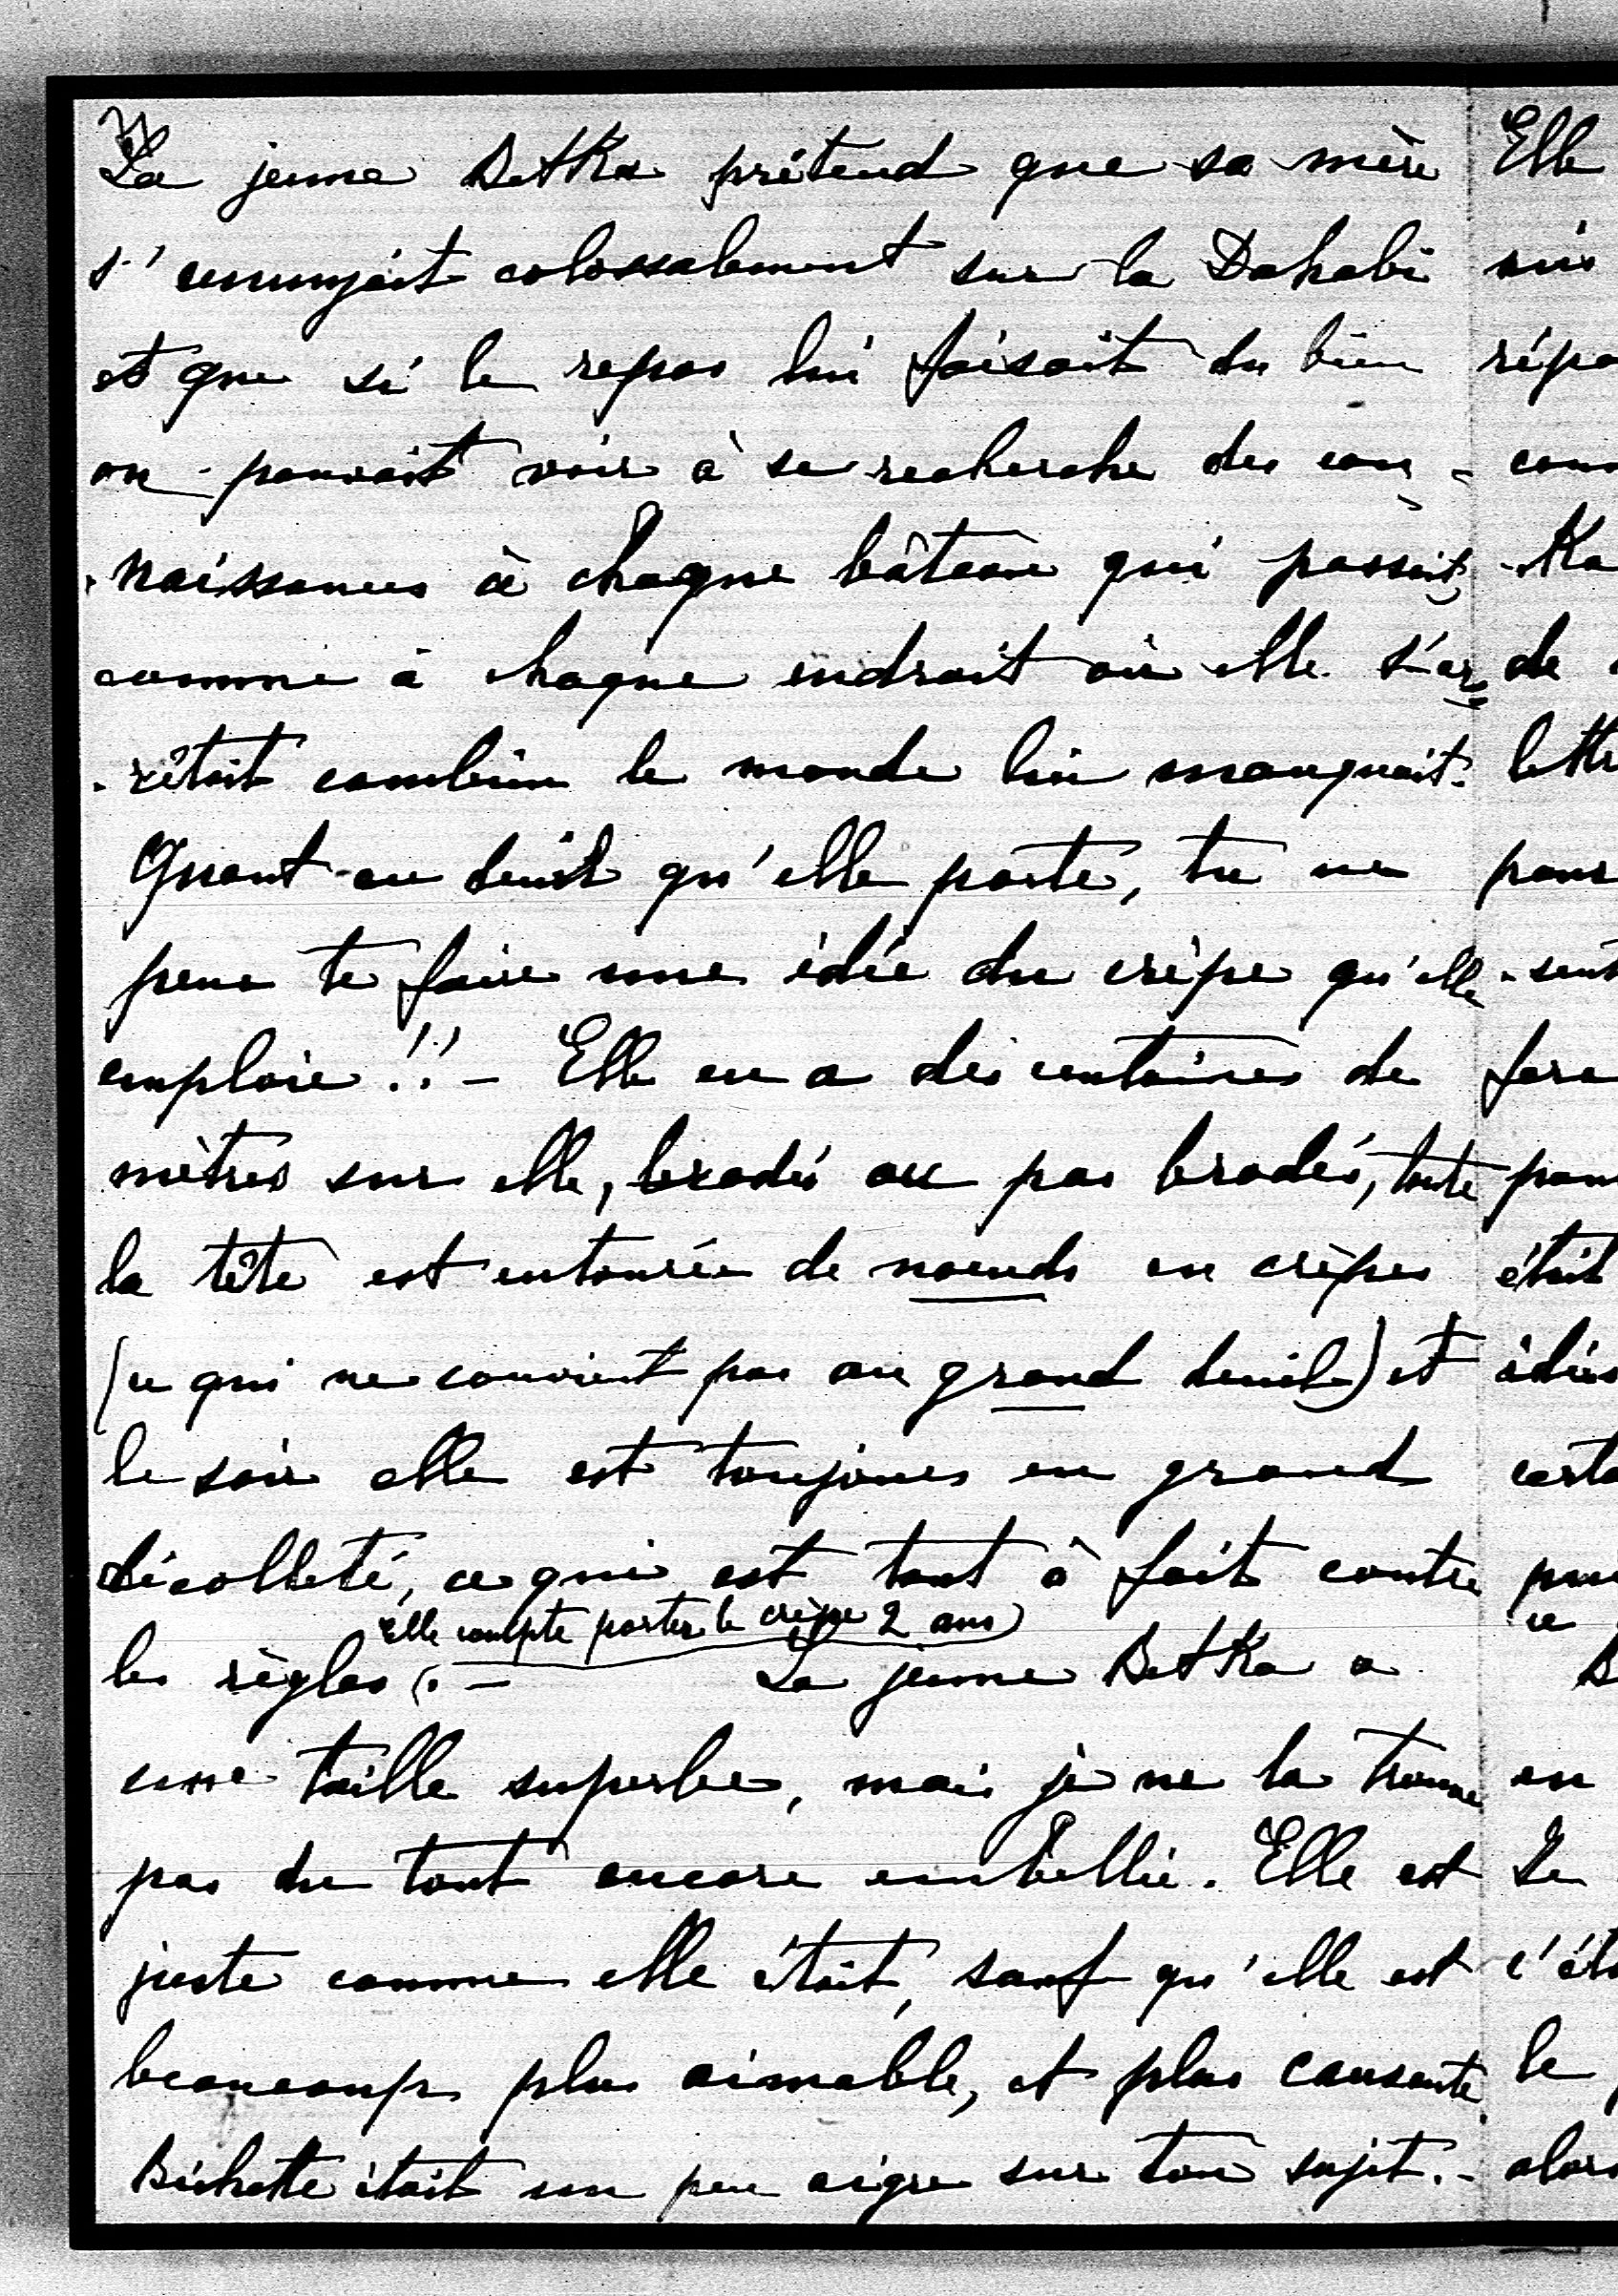 La jeune Betka prétend que sa mère
s'ennuyait colossalement sur la Dahabi
et que si le repos lui faisait du bien
on pouvait voir à sa recherche des con-
-naissances à chaque bâteau qui passait,
comme à chaque endroit où elle s'ar-
-rêtait combien le monde lui manquait.
Quant au deuil qu'elle porte, tu ne
peux te faire une idée du crèpe qu'elle
emploie!! – Elle en a des centaines de
mètres sur elle, brodés ou pas brodés, toute
la tête est entourée de noeuds en crèpes
(ce qui ne convient pas au grand deuil) et
le soir elle est toujours en grand
décolleté, ce qui est tout à fait contre
Elle compte porter le crèpe 2 ans
les règles. – La jeune Betka a
une taille superbe, mais je ne la trouve
pas du tout encore embellie. Elle est
juste comme elle était, sauf qu'elle est
beaucoup plus aimable, et plus causante
Bichette était un peu aigre sur ton sujet. -
Elle
répo
con
Ka
de
lettr
pour
-sent
fera
pour
était
idées
certa
pui
ce
B
en
Je
c'éta
le
alors